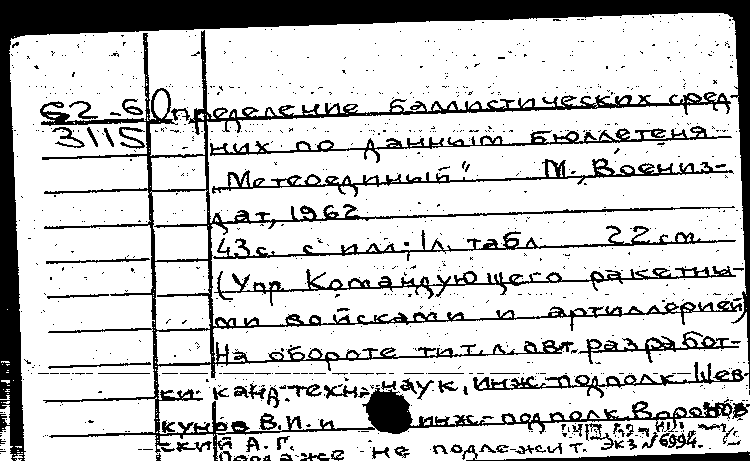 62-6 Определение баллистических сред-
3115 них по данным бюллетеня
„Метеоединый“ М., Воениз-
дат, 1962.
43 с. с илл; 1 л. табл. 22 см.
(Упр. Командующего ракетны-
ми войсками и артиллерией)
На обороте тит. л. авт. разработ-
ки: канд. техн. наук, инж.-подполк. Шев-
кунов В.И. и инж.-подполк. Воронов-
ский А.Г.
Продаже не подлежит. Экз №6994.